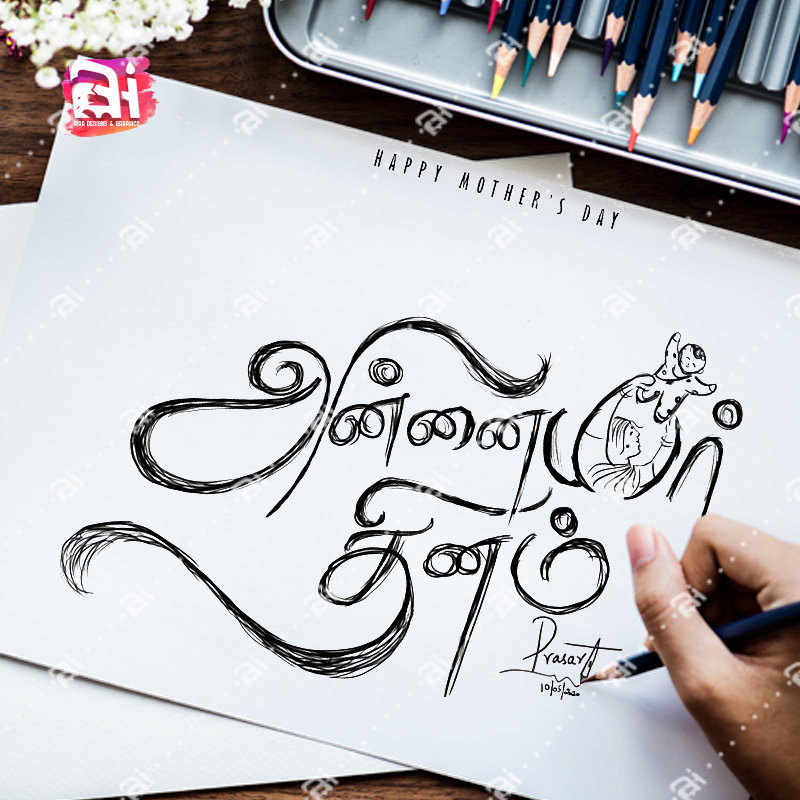 ai
AIRA DESIGNS & GRAPHICS
HAPPY MOTHER'S DAY
அன்னையர்
தினம்
Prasanth
10/05/2020